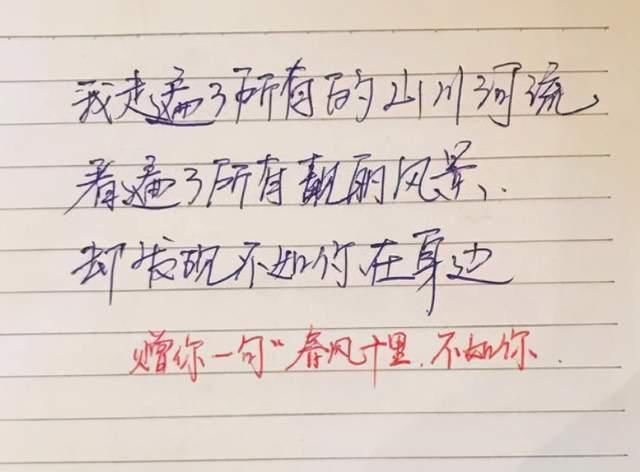 我走遍了所有的山川河流、
看遍了所有靓丽风景、.
却发现不如你在身边
赠你一句“春风十里.不如你.